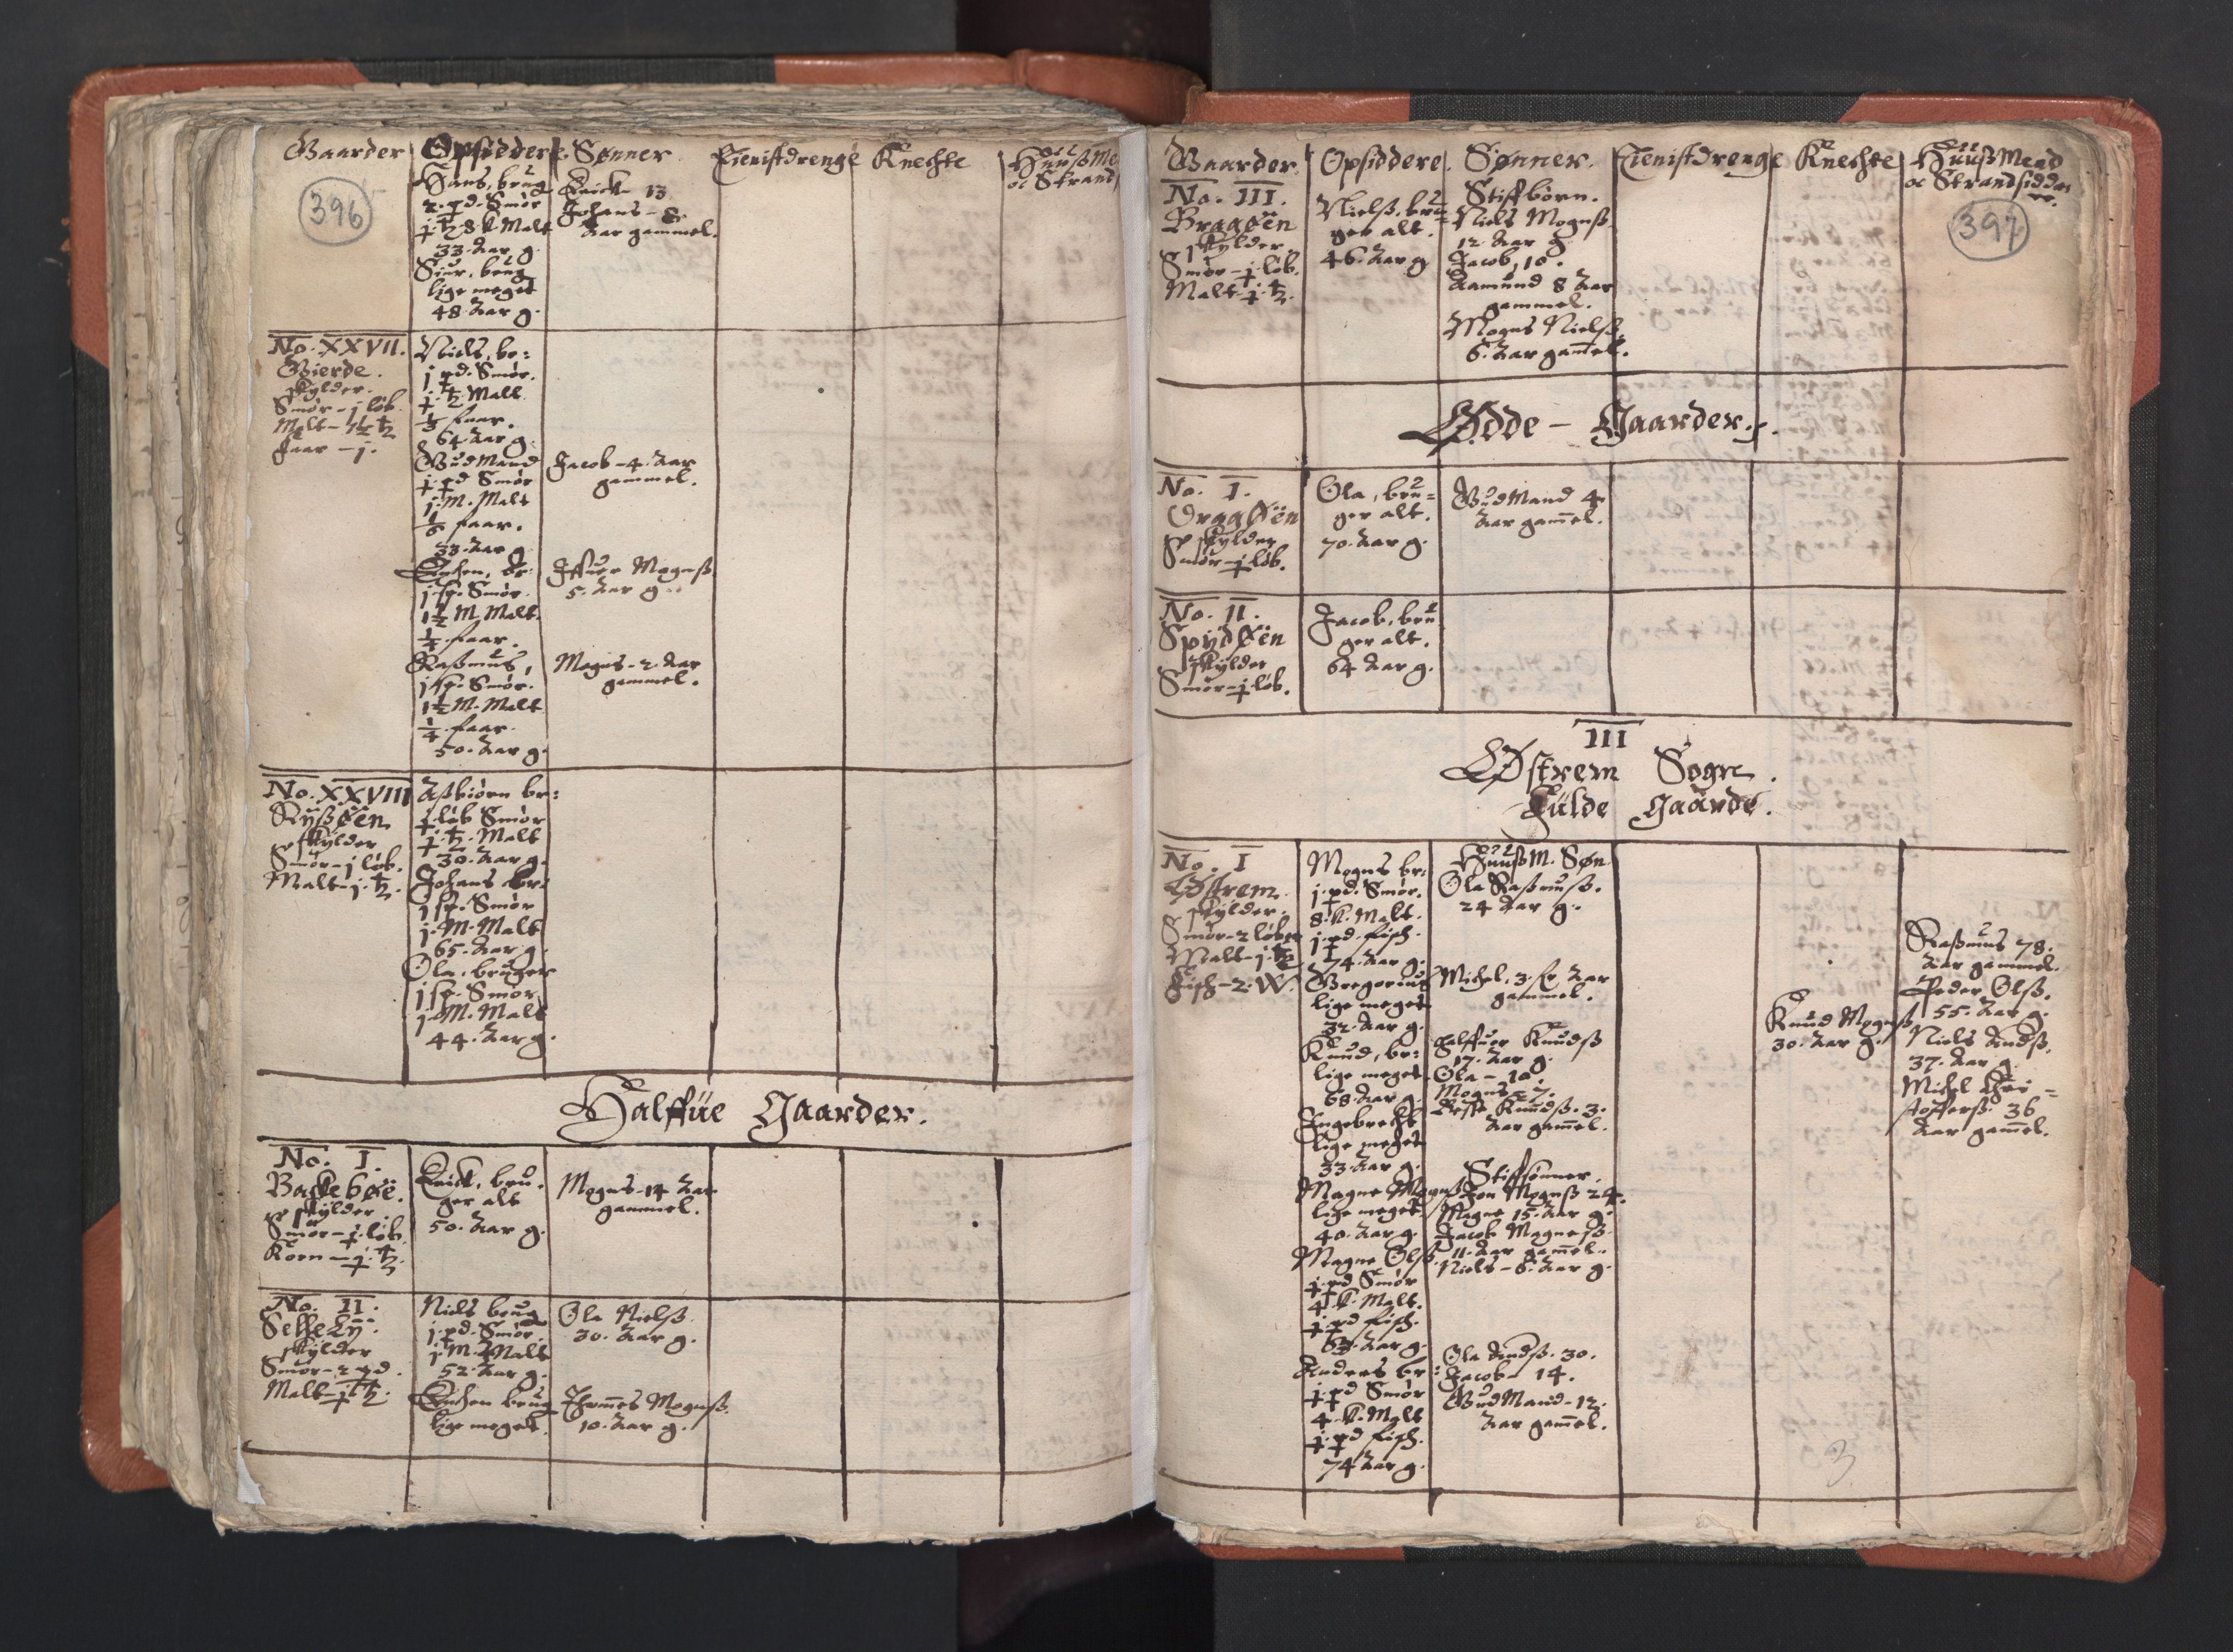 396
Gaarder
Opsiddere
Sønner
Tienistdrenge
Knechte
Huußme
oc Strand
Hans, brug
2. pd. Smør
8. k. Malt
33. Aar g.
Siur, brug
lige meget
48. Aar g.
Erick 13
Johans - 8.
Aar gammel.
No. XXVII.
Gierde.
skylder.
Smør - j løb.
Malt -
Faar - j.
Niels, br:
j pd. Smør.
Malt
1/3 faar.
64 Aar g.
Gudmand
j. pd Smør
j. M. Malt
1/6 faar.
33. Aar g.
Enchen, br:
j sp. Smør.
1½ M. Malt.
¼ faar.
Raßmus,
j sp. Smør.
1½ M. Malt
¼ faar.
50. Aar g.
Jacob - 4. Aar
gammel.
Iffuer Mognß.
5. Aar g.
Mogns - 2. Aar
gammel.
No. XXVIII
Ryßøen
skylder
Smør - j løb.
Malt - j.
Aßbiørn br:
løb Smør
Malt
30. Aar g.
Johans br:
j sp. Smør
j. M. Malt
65. Aar g.
Ola, bruger
j sp. Smør
j. M. Malt
44. Aar g.
Halffue Gaarder.
No. I.
Backebøe.
skylder
Smør - j. løb.
Korn - j.
Erick, bru-
ger alt
50. Aar g.
Mogns - 14 Aar
gammel.
No. II.
skylder
Smør - 2 pd.
Malt -
Niels brug
j. pd. Smør.
j. M. Malt
52. Aar g.
Enchen brug
lige meget.
Ola Nielß.
30. Aar g.
Thommes Mognß.
10. Aar g.
397
Gaarder
Opsiddere
Sønner.
Tienistdrenge
Knechte
HuußMend
oc Strandsidde
re.
No. III.
Bragøen
skylder
Smør - j. løb.
Malt - j.
Nielß, bru-
ger alt.
46. Aar g
Stiffbørn.
Niels Mognß
12. Aar g.
Jacob, 10.
Aamund 8 Aar
gammel.
Mogns Nielß.
6. Aar gammel.
Ødde - Gaarder.
No. I.
Draagøen
skylder
Smør - j. løb.
Ola, bru-
ger alt.
70. Aar g.
GudMand 4
Aar gammel.
No. II.
Spydøen
skylder
Smør - j. løb.
Jacob, bru
ger alt.
64 Aar g.
III
Østrem Sogn.
Fulde Gaarde.
No. I
Østrem.
skylder.
Smør - 2 løber
Malt - j.
Fisk - 2. W.
Mogns br:
j. pd. Smør.
8. k. Malt.
j. pd. fisk.
74. Aar g.
Gregorius
lige meget
32. Aar g.
Knud, br:
lige meget.
68. Aar g.
Ingebrecht
lige meget
33. Aar g.
Magne Mognß
lige meget.
40. Aar g.
Magne Olß.
j. pd Smør
4. k. Malt.
j. pd fisk.
63. Aar g.
Anders br:
j. pd Smør
4. k. Malt
j. pd fisk.
74 Aar g.
HuußM. Søn
Ola Raßmuß.
24 Aar g.
Michel, 3. Aar
gammel.
Knudß
17. Aar g.
Ola - 10.
Mogns - 7.
Knudß. 3.
Aar gammel.
Stiffsønner.
Jon Mognß 24.
Magne 15. Aar g.
Jacob Magneß.
11. Aar gammel.
Niels - 6. Aar g.
Ola Andß. 30.
Jacob - 14.
GudMand - 12.
Aar gammel.
Knud Mognß
30. Aar g.
Raßmus 78.
Aar gammel.
Peder Olß.
55. Aar g.
Niels Andß.
37. Aar g.
Michel Chri-
stofferß. 36
Aar gammel.
3